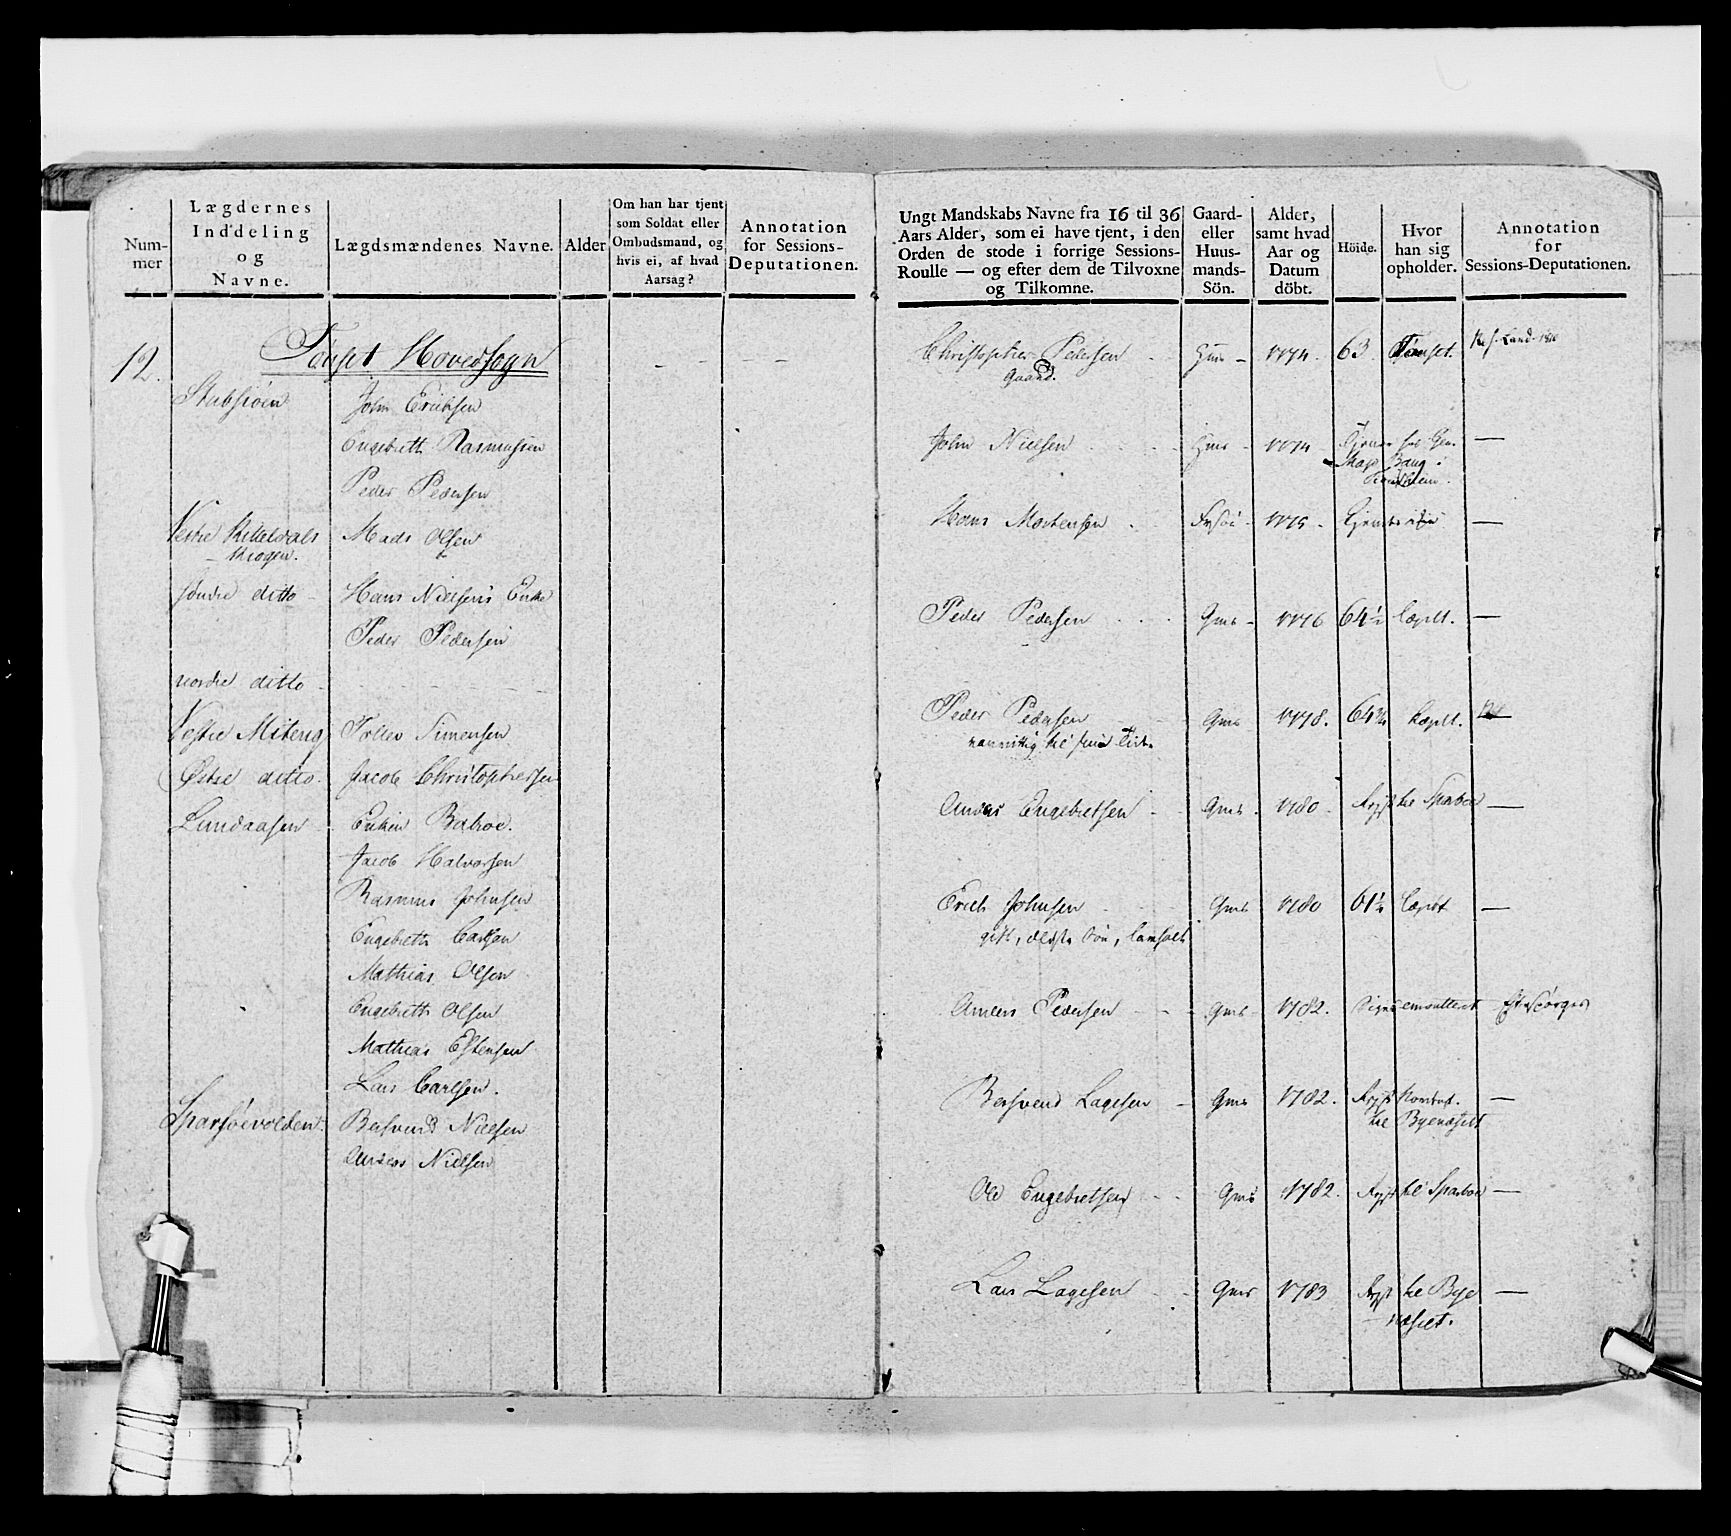 Num-
mer
Lægdernes
Inddeling
og
Navne.
Lægdsmændenes Navne.
Alder
Om han har tjent
som Soldat eller
Ombudsmand, og
hvis ei, af hvad
Aarsag?
Annotation
for Sessions-
Deputationen.
12.
Tønset Hovedsogn
Stubsiøen
John Erichsen
Engebreth Rasmussen
Peder Pedersen
Vestre
Mads Olsen
Krogen.
søndre ditto
Hans Nielsens Enke
Peder Pedersen
nordre ditto
Vestre
Tollev Simensen
Østre ditto
Jacob Christophersen
Lundaasen
Enken
Jacob Halvorsen
Rasmus Johnsen
Engebreth Carlsen
Mathias Olsen
Engebreth Olsen
Mathias Estensen
Lars Carlsen.
Sparsøevolden
Bersvend Nielsen
Anders Nielsen
Ungt Mandskabs Navne fra 16 til 36
Aars Alder, som ei have tjent, i den
Orden de stode i forrige Sessions-
Roulle — og efter dem de Tilvoxne
og Tilkomne.
Gaard-
eller
Huus-
mands-
Sön.
Alder,
samt hvad
Aar og
Datum
döbt.
Höide.
Hvor
han sig
opholder.
Annotation
for
Sessions-Deputationen.
Christopher Pedersen 1774. 63 Tønset.
Gaard.
John Nielsen Gms 1774
Hans Mortensen 1775
Peder Pedersen Gms 1776 64½ Lægdt. —
Peder Pedersen Gms 1778. 64¾ Lægdt.
vanvittig
Anders Engebretsen Gms. 1780 Reist til Sparboe —
Erich Johnsen Gms 1780 61½ Lægdt —
gift, ældste Søn,
Anders Pedersen Gms 1782.
Bersvend Lagesen Gms 1782. Reist —
til Byenæsset
Ole Engebretsen Gms 1782. Reist til Sparboe —
Lars Lagesen Gms 1783 Reist til Bye —
næsset.